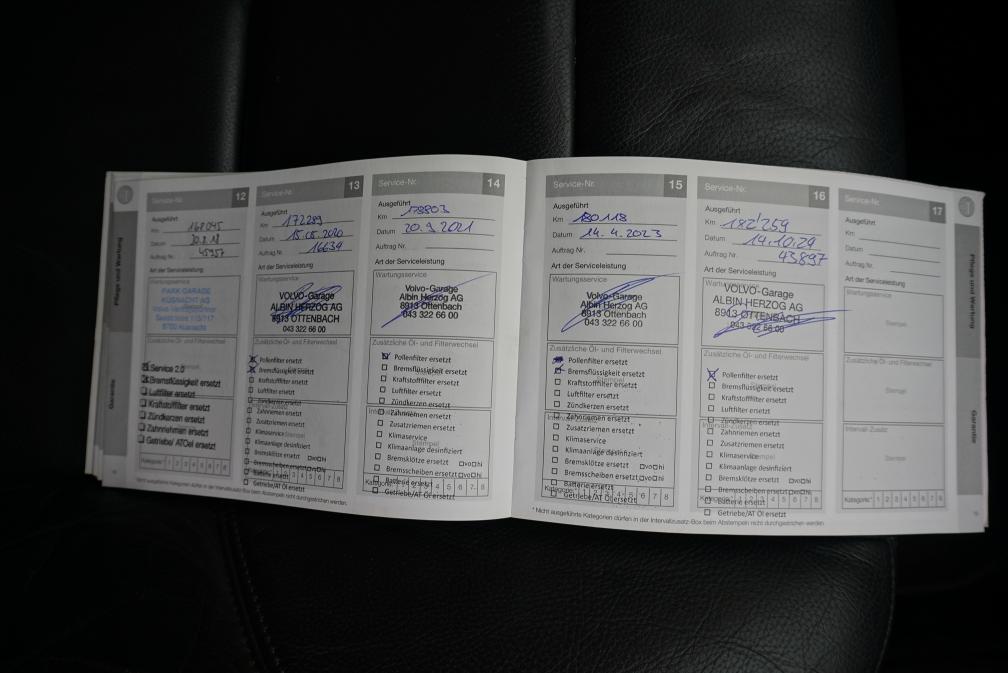 Pflege und Wartung
Garantie
Service-Nr. 12
Ausgeführt
Km 168045
Datum
Auftrag Nr. 45357
Art der Serviceleistung
Wartungsservice
PARK GARAGE
KÜSNACHT AG
8700 Küsnacht
Zusätzliche Öl- und Filterwechsel
Service 2.0
Bremsflüssigkeit ersetzt
Luftfilter ersetzt
Kraftstofffilter ersetzt
Zündkerzen ersetzt
Zahnriemen ersetzt
Getriebe/ ATOel ersetzt
Kategorie* 1 2 3 4 5 6 7 8
Service-Nr. 13
Ausgeführt
Km 172289
Datum 15.05.2020
Auftrag Nr. 16639
Art der Serviceleistung
Wartungsservice
VOLVO-Garage
ALBIN HERZOG AG
8913 OTTENBACH
043 322 66 00
Zusätzliche Öl- und Filterwechsel
Pollenfilter ersetzt
Bremsflüssigkeit ersetzt
Kraftstofffilter ersetzt
Luftfilter ersetzt
Zündkerzen ersetzt
Zahnriemen ersetzt
Zusatzriemen ersetzt
Klimaservice
Klimaanlage desinfiziert
Bremsklötze ersetzt vo hi
Bremsscheiben ersetzt vo hi
Batterie ersetzt
Getriebe/AT Öl ersetzt
Service-Nr. 14
Ausgeführt
Km 178803
Datum 20.9.2021
Auftrag Nr.
Art der Serviceleistung
Wartungsservice
Volvo-Garage
Albin Herzog AG
8913 Ottenbach
043 322 66 00
Zusätzliche Öl- und Filterwechsel
Pollenfilter ersetzt
Bremsflüssigkeit ersetzt
Kraftstofffilter ersetzt
Luftfilter ersetzt
Zündkerzen ersetzt
Zahnriemen ersetzt
Zusatzriemen ersetzt
Klimaservice
Klimaanlage desinfiziert
Bremsklötze ersetzt vo hi
Bremsscheiben ersetzt vo hi
Batterie ersetzt
Getriebe/AT Öl ersetzt
* Nicht ausgeführte Kategorien dürfen in der Intervallzusatz-Box beim Abstempeln nicht durchgestrichen werden.
Service-Nr. 15
Ausgeführt
Km 180118
Datum 14.4.2023
Auftrag Nr.
Art der Serviceleistung
Wartungsservice
Volvo-Garage
Albin Herzog AG
8913 Ottenbach
043 322 66 00
Zusätzliche Öl- und Filterwechsel
Pollenfilter ersetzt
Bremsflüssigkeit ersetzt
Kraftstofffilter ersetzt
Luftfilter ersetzt
Zündkerzen ersetzt
Zahnriemen ersetzt
Zusatzriemen ersetzt
Klimaservice
Klimaanlage desinfiziert
Bremsklötze ersetzt vo hi
Bremsscheiben ersetzt vo hi
Batterie ersetzt
Getriebe/AT Öl ersetzt
Service-Nr. 16
Ausgeführt
Km 182'259
Datum 14.10.24
Auftrag Nr. 43897
Art der Serviceleistung
Wartungsservice
VOLVO-Garage
ALBIN HERZOG AG
8913 OTTENBACH
043 322 66 00
Zusätzliche Öl- und Filterwechsel
Pollenfilter ersetzt
Bremsflüssigkeit ersetzt
Kraftstofffilter ersetzt
Luftfilter ersetzt
Zündkerzen ersetzt
Zahnriemen ersetzt
Zusatzriemen ersetzt
Klimaservice
Klimaanlage desinfiziert
Bremsklötze ersetzt vo hi
Bremsscheiben ersetzt vo hi
Batterie ersetzt
Getriebe/AT Öl ersetzt
Service-Nr. 17
Ausgeführt
Km
Datum
Auftrag Nr.
Art der Serviceleistung
Wartungsservice
Stempel
Zusätzliche Öl- und Filterwechsel
Stempel
Intervall-Zusatz
Stempel
Kategorie* 1 2 3 4 5 6 7 8
* Nicht ausgeführte Kategorien dürfen in der Intervallzusatz-Box beim Abstempeln nicht durchgestrichen werden.
Pflege und Wartung
Garantie